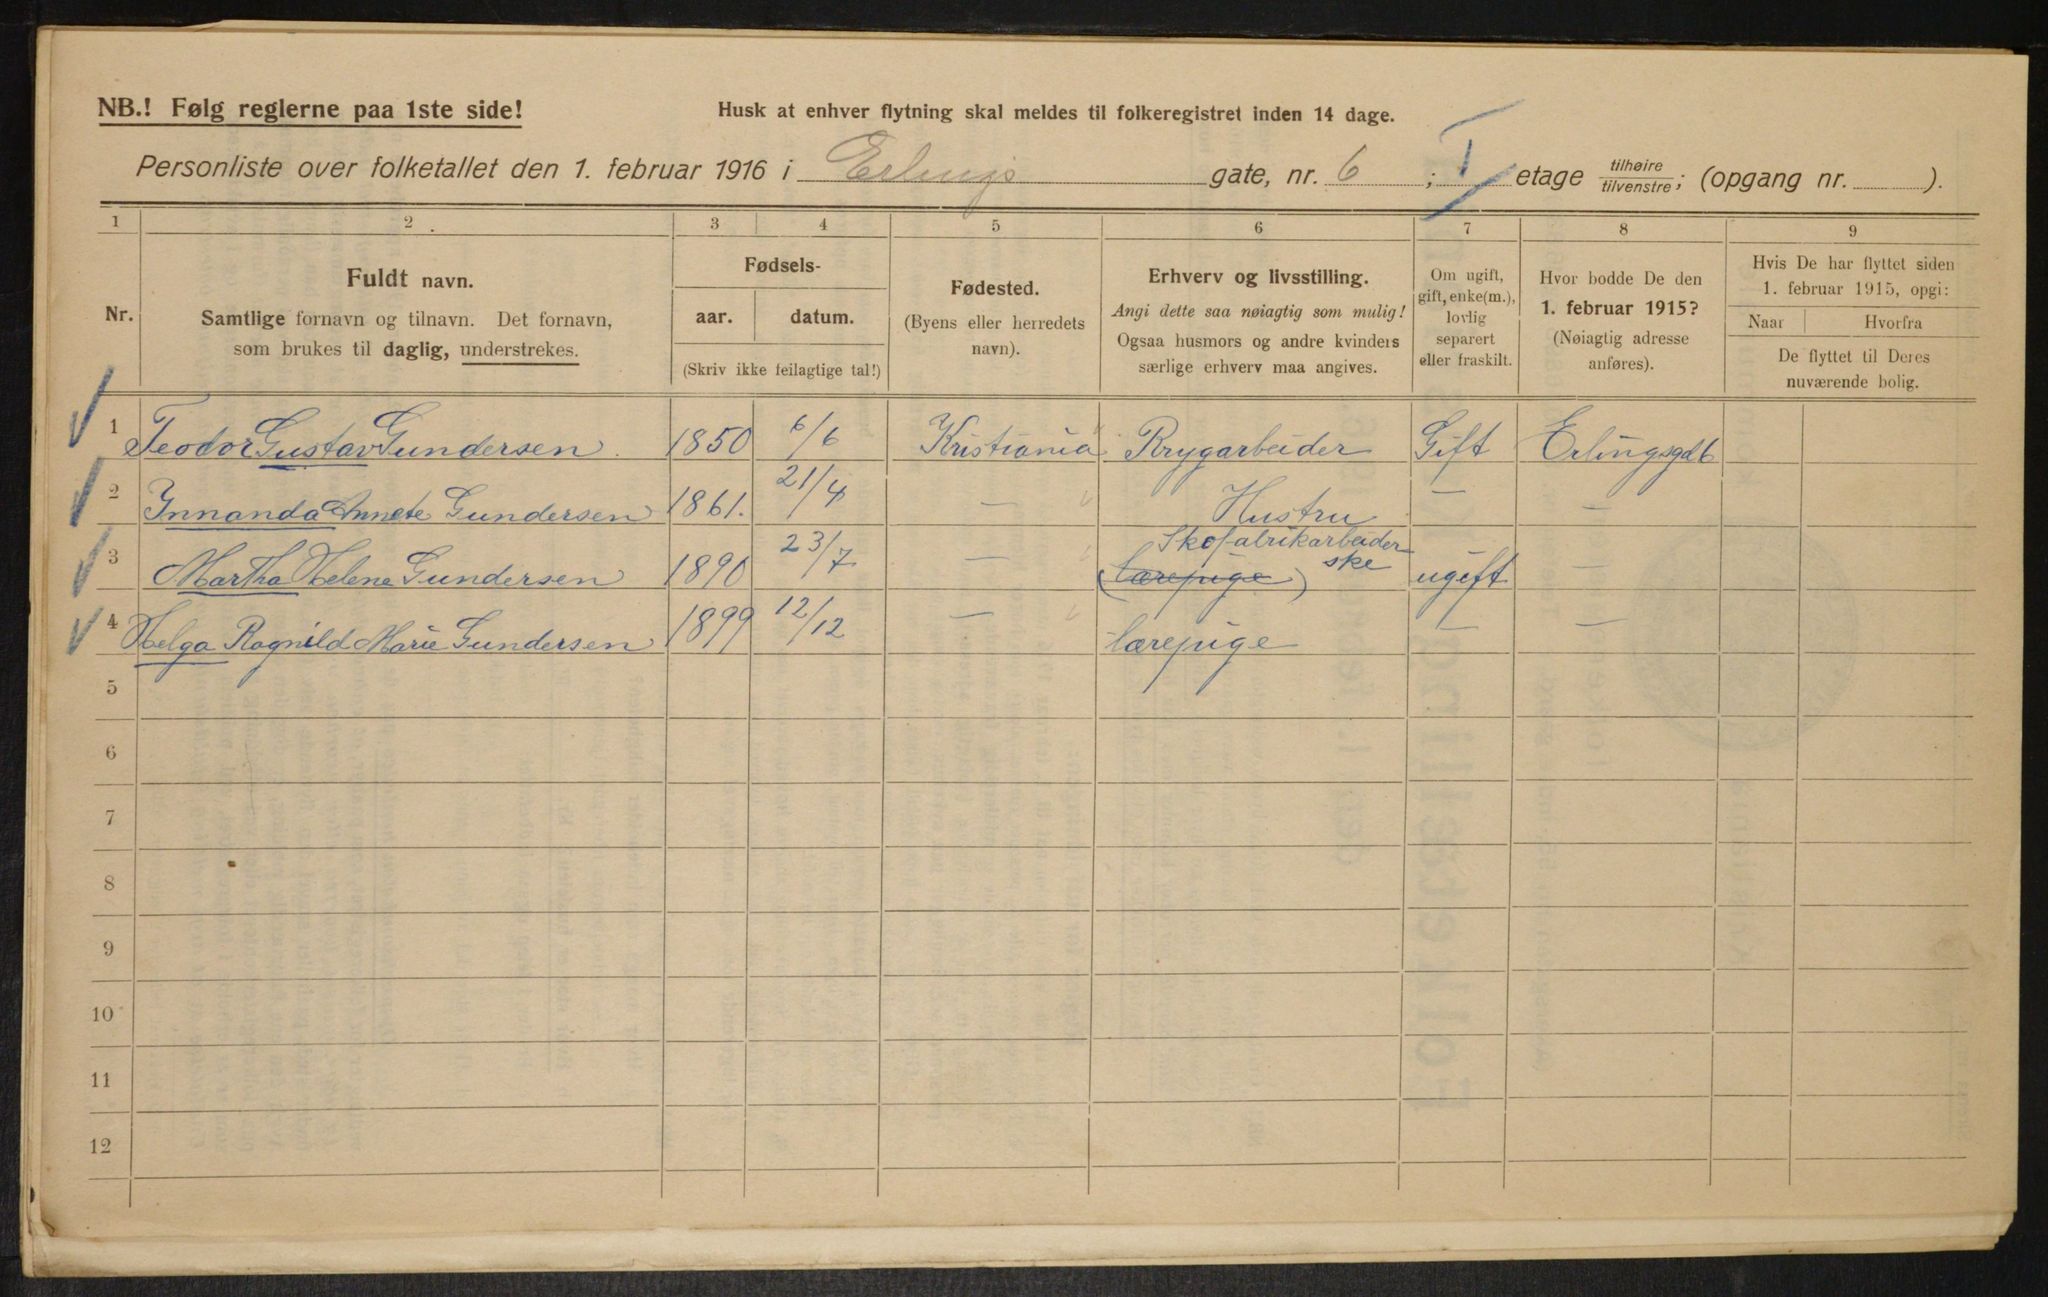 NB.! Følg reglerne paa 1ste side!
Husk at enhver flytning skal meldes til folkeregistret inden 14 dage.
Personliste over folketallet den 1. februar 1916 i Erlings gate, nr. 6 ; I etage tilhøire tilvenstre; (opgang nr. ).
1 2 3 4 5 6 7 8 9
Nr.
Fuldt navn.
Samtlige fornavn og tilnavn. Det fornavn,
som brukes til daglig, understrekes.
Fødsels-
aar. datum.
(Skriv ikke feilagtige tal!)
Fødested.
(Byens eller herredets
navn).
Erhverv og livsstilling.
Angi dette saa nøiagtig som mulig!
Ogsaa husmors og andre kvinders
særlige erhverv maa angives.
Om ugift,
gift, enke(m.),
lovlig
separert
eller fraskilt.
Hvor bodde De den
1. februar 1915?
(Nøiagtig adresse
anføres).
Hvis De har flyttet siden
1. februar 1915, opgi:
Naar Hvorfra
De flyttet til Deres
nuværende bolig.
1 Teodor Gustav Gundersen 1850 6/6 Kristiania Brygarbeider Gift Erlingsgd 6
2 Innanda Annete Gundersen 1861. 21/4 — Hustru — —
3 Martha Helene Gundersen 1890 23/7 — Skofabrikarbeider ske (lærepige) ugift —
4 Helga Ragnild Marie Gundersen 1899 12/12 — lærepige — —
5
6
7
8
9
10
11
12